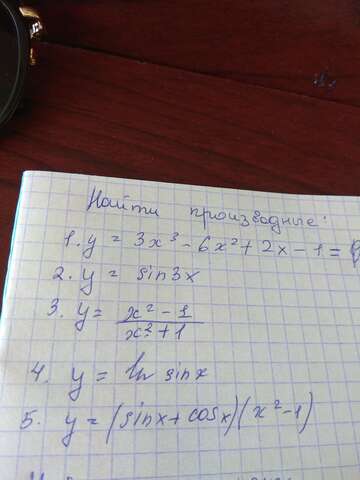 Найти производные:
1. y = 3x³ - 6x² + 2x - 1 =
2. y = sin3x
3. y = \frac{x² - 1}{x² + 1}
4. y = ln sinx
5. y = (sinx + cosx)(x² - 1)